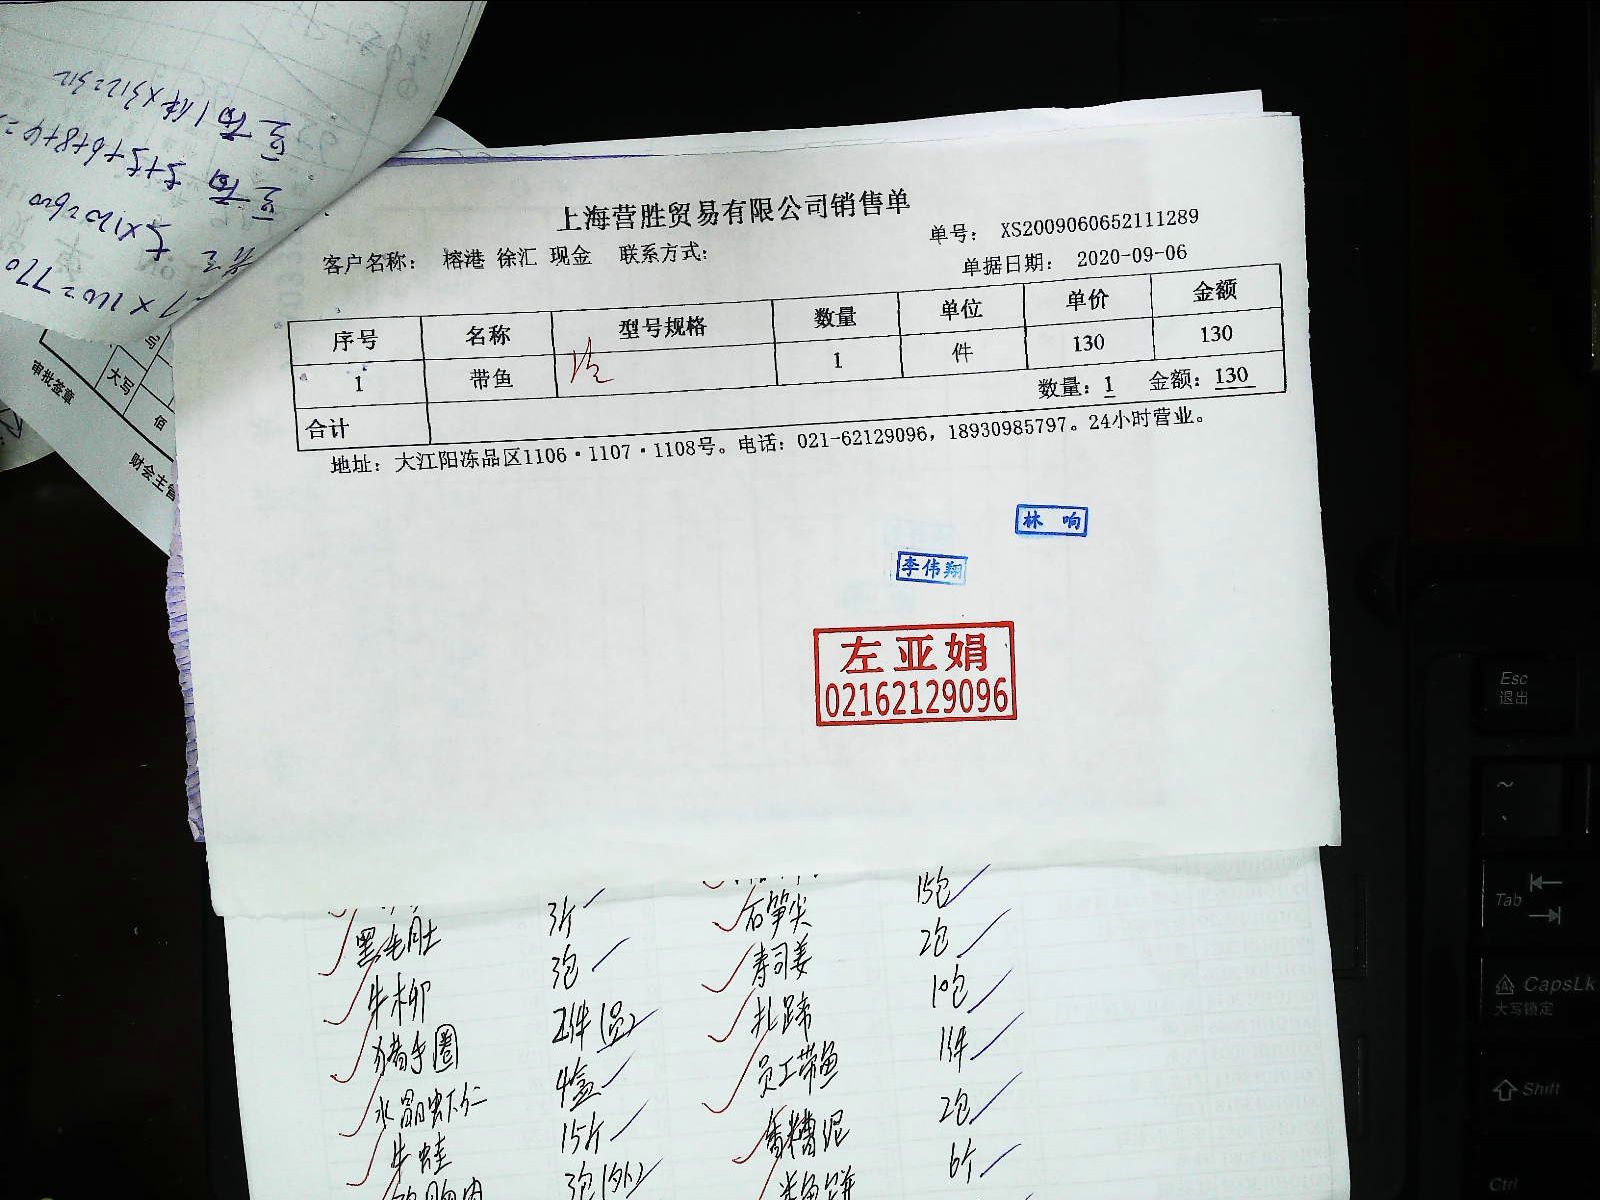 上海营胜贸易有限公司销售单
单号: XS2009060652111289
客户名称: 榕港 徐汇 现金 联系方式:
单据日期: 2020-09-06
序号 名称 型号规格 数量 单位 单价 金额
1 带鱼 1 件 130 130
合计 数量: 1 金额: 130
地址: 大江阳冻品区1106·1107·1108号。电话: 021-62129096, 18930985797。24小时营业。
林 响
李伟翔
左亚娟
02162129096
×110=770
5×120=600
3+5+6+8+4=
1件×312=312
大写
佰
审批签章
财会主管
黑毛肚 3斤 石笋尖 15包
牛柳 3包 寿司姜 2包
2件 扎蹄 10包
水晶虾仁 4盒 员工带鱼 1件
牛蛙 15斤 香糟泥 2包
3包 6个
Esc
退出
~
Tab
CapsLk
大写锁定
Shift
Ctrl